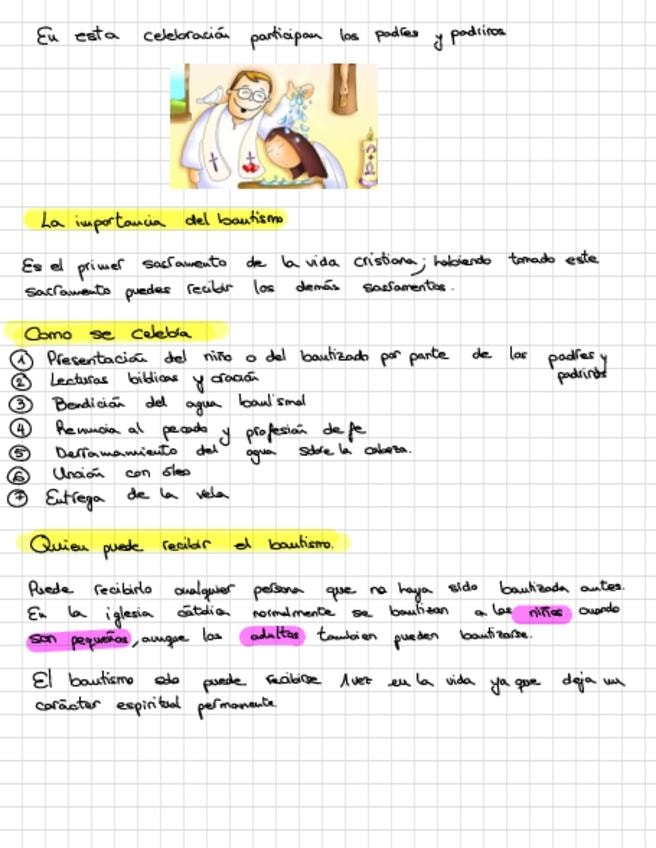 En esta celebración participan los padres y padrinos
La importancia del bautismo
Es el primer sacramento de la vida cristiana; habiendo tomado este
sacramento puedes recibir los demás sacramentos.
Como se celebra
1 Presentación del niño o del bautizado por parte de los padres y
padrinos
2 Lecturas biblicas y oración
3 Bendición del agua bautismal
4 Renuncia al pecado y profesión de fe
5 Derramamiento del agua sobre la cabeza.
6 Unción con óleo
7 Entrega de la vela
Quien puede recibir el bautismo.
Puede recibirlo cualquier persona que no haya sido bautizada antes.
En la iglesia católica normalmente se bautizan a los niños cuando
son pequeños, aunque los adultos tambien pueden bautizarse.
El bautismo solo puede recibirse 1 vez en la vida ya que deja un
carácter espiritual permanente.